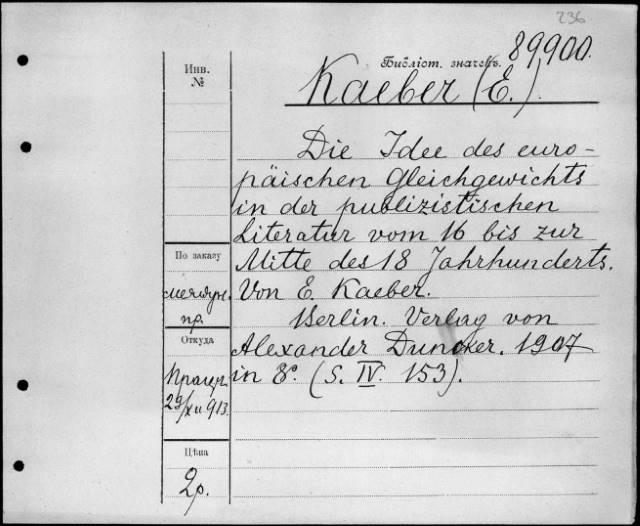 236
89900.
Библіот. значекъ.
Инв.
№
Kaeber (E.).
Die Idee des euro-
päischen Gleichgewichts
in der publizistischen
Literatur vom 16 bis zur
Mitte des 18 Jahrhunderts.
Von E. Kaeber.
Berlin. Verlag von
Alexander Duncker. 1907
in 8º. (S. IV. 153).
По заказу
междун.
пр.
Откуда
29/XII 913.
Цѣна
2р.